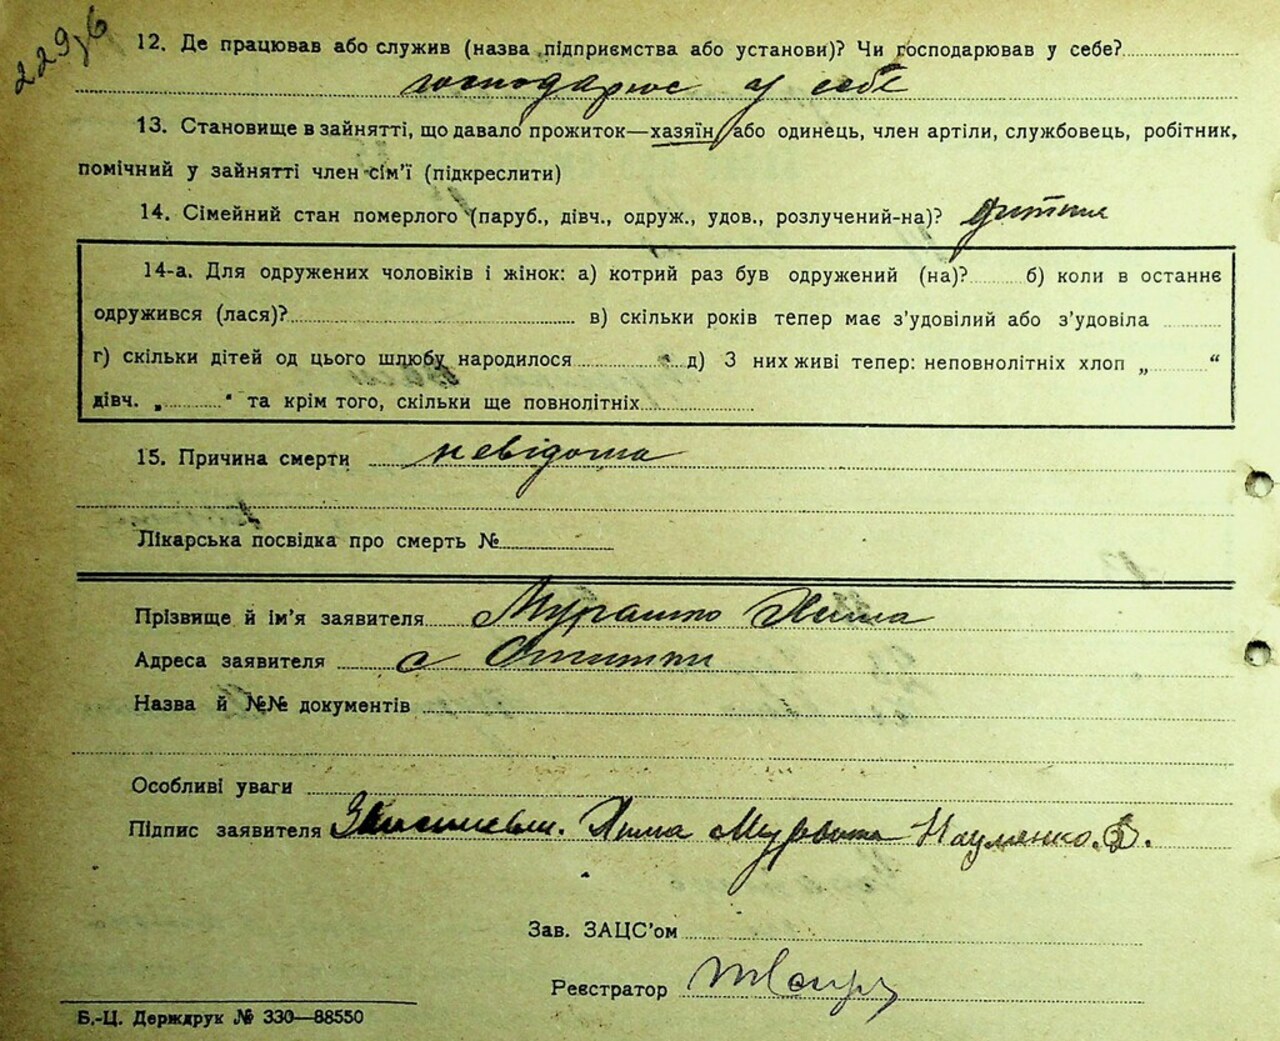 229/б
12. Де працював або служив (назва підприємства або установи)? Чи господарював у себе?
господарює у себе
13. Становище в зайнятті, що давало прожиток—хазяїн, або одинець, член артіли, службовець, робітник,
помічний у зайнятті член сім'ї (підкреслити)
14. Сімейний стан померлого (паруб., дівч., одруж., удов., розлучений-на)? дитина
14-а. Для одружених чоловіків і жінок: а) котрий раз був одружений (на)? б) коли в останнє
одружився (лася)? в) скільки років тепер має з'удовілий або з'удовіла
г) скільки дітей од цього шлюбу народилося д) З них живі тепер: неповнолітніх хлоп „ “
дівч. „ “ та крім того, скільки ще повнолітніх
15. Причина смерти невідома
Лікарська посвідка про смерть №
Прізвище й ім'я заявителя Мурашко Хима
Адреса заявителя с
Назва й №№ документів
Особливі уваги
Підпис заявителя Хима Науменко.
Зав. ЗАЦС'ом
Реєстратор
Б.-Ц. Держдрук № 330—88550